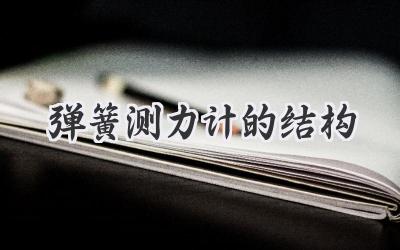 弹簧测力计的结构